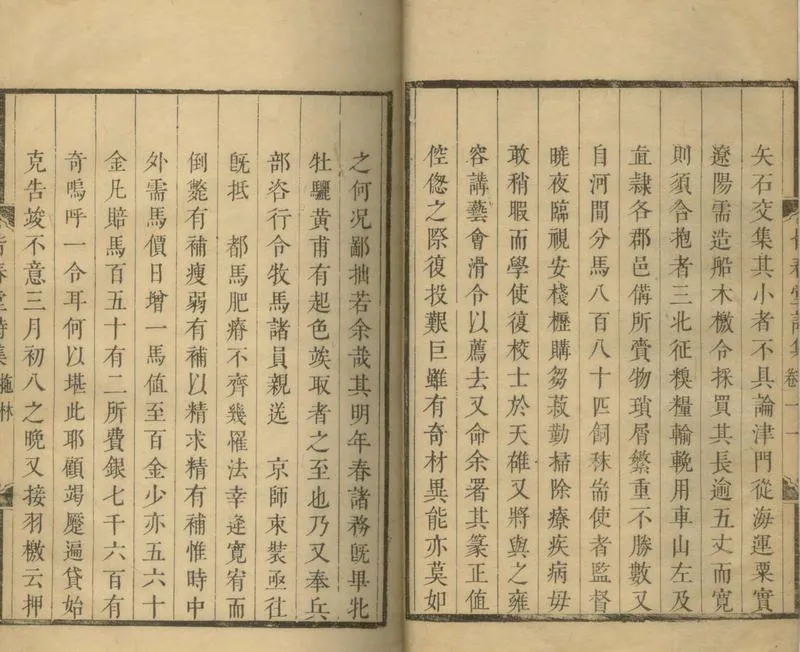 矢石交集其小者不具論津門從海運粟實
遼陽需造船木檄令採買其長逾五丈而寬
則須合抱者三北征糗糧輸輓用車山左及
直隸各郡邑備所賫物瑣屑繁重不勝數又
自河間分馬八百八十匹飼秣耑使者監督
曉夜臨視安棧櫪購芻菽勤掃除療疾病毋
敢稍暇而學使復校士於天雄又將與之雍
容講藝會滑令以薦去又命余署其篆正值
倥傯之際復投艱巨雖有奇材異能亦莫如
之何況鄙拙若余哉其明年春諸務旣畢牝
牡驪黃甫有起色竢取者之至也乃又奉兵
部咨行令牧馬諸員親送 京師束裝亟往
旣抵 都馬肥瘠不齊幾罹法幸逢寬宥而
倒斃有補瘦弱有補以精求精有補惟時中
外需馬價日增一馬值至百金少亦五六十
金凡賠馬百五十有二所費銀七千六百有
奇嗚呼一令耳何以堪此耶顧竭蹷遍貸始
克告竣不意三月初八之晚又接羽檄云押
春堂詩集